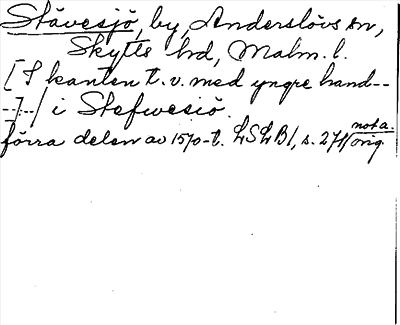 Stävesjö, by, Anderslövs sn,
Skytts hd, Malm. l.
[I kanten t. v. med yngre hand--
--]--/ i Stefwesiö.
förra delen av 1570-t. LSLB1, s. 271/ nota. orig.